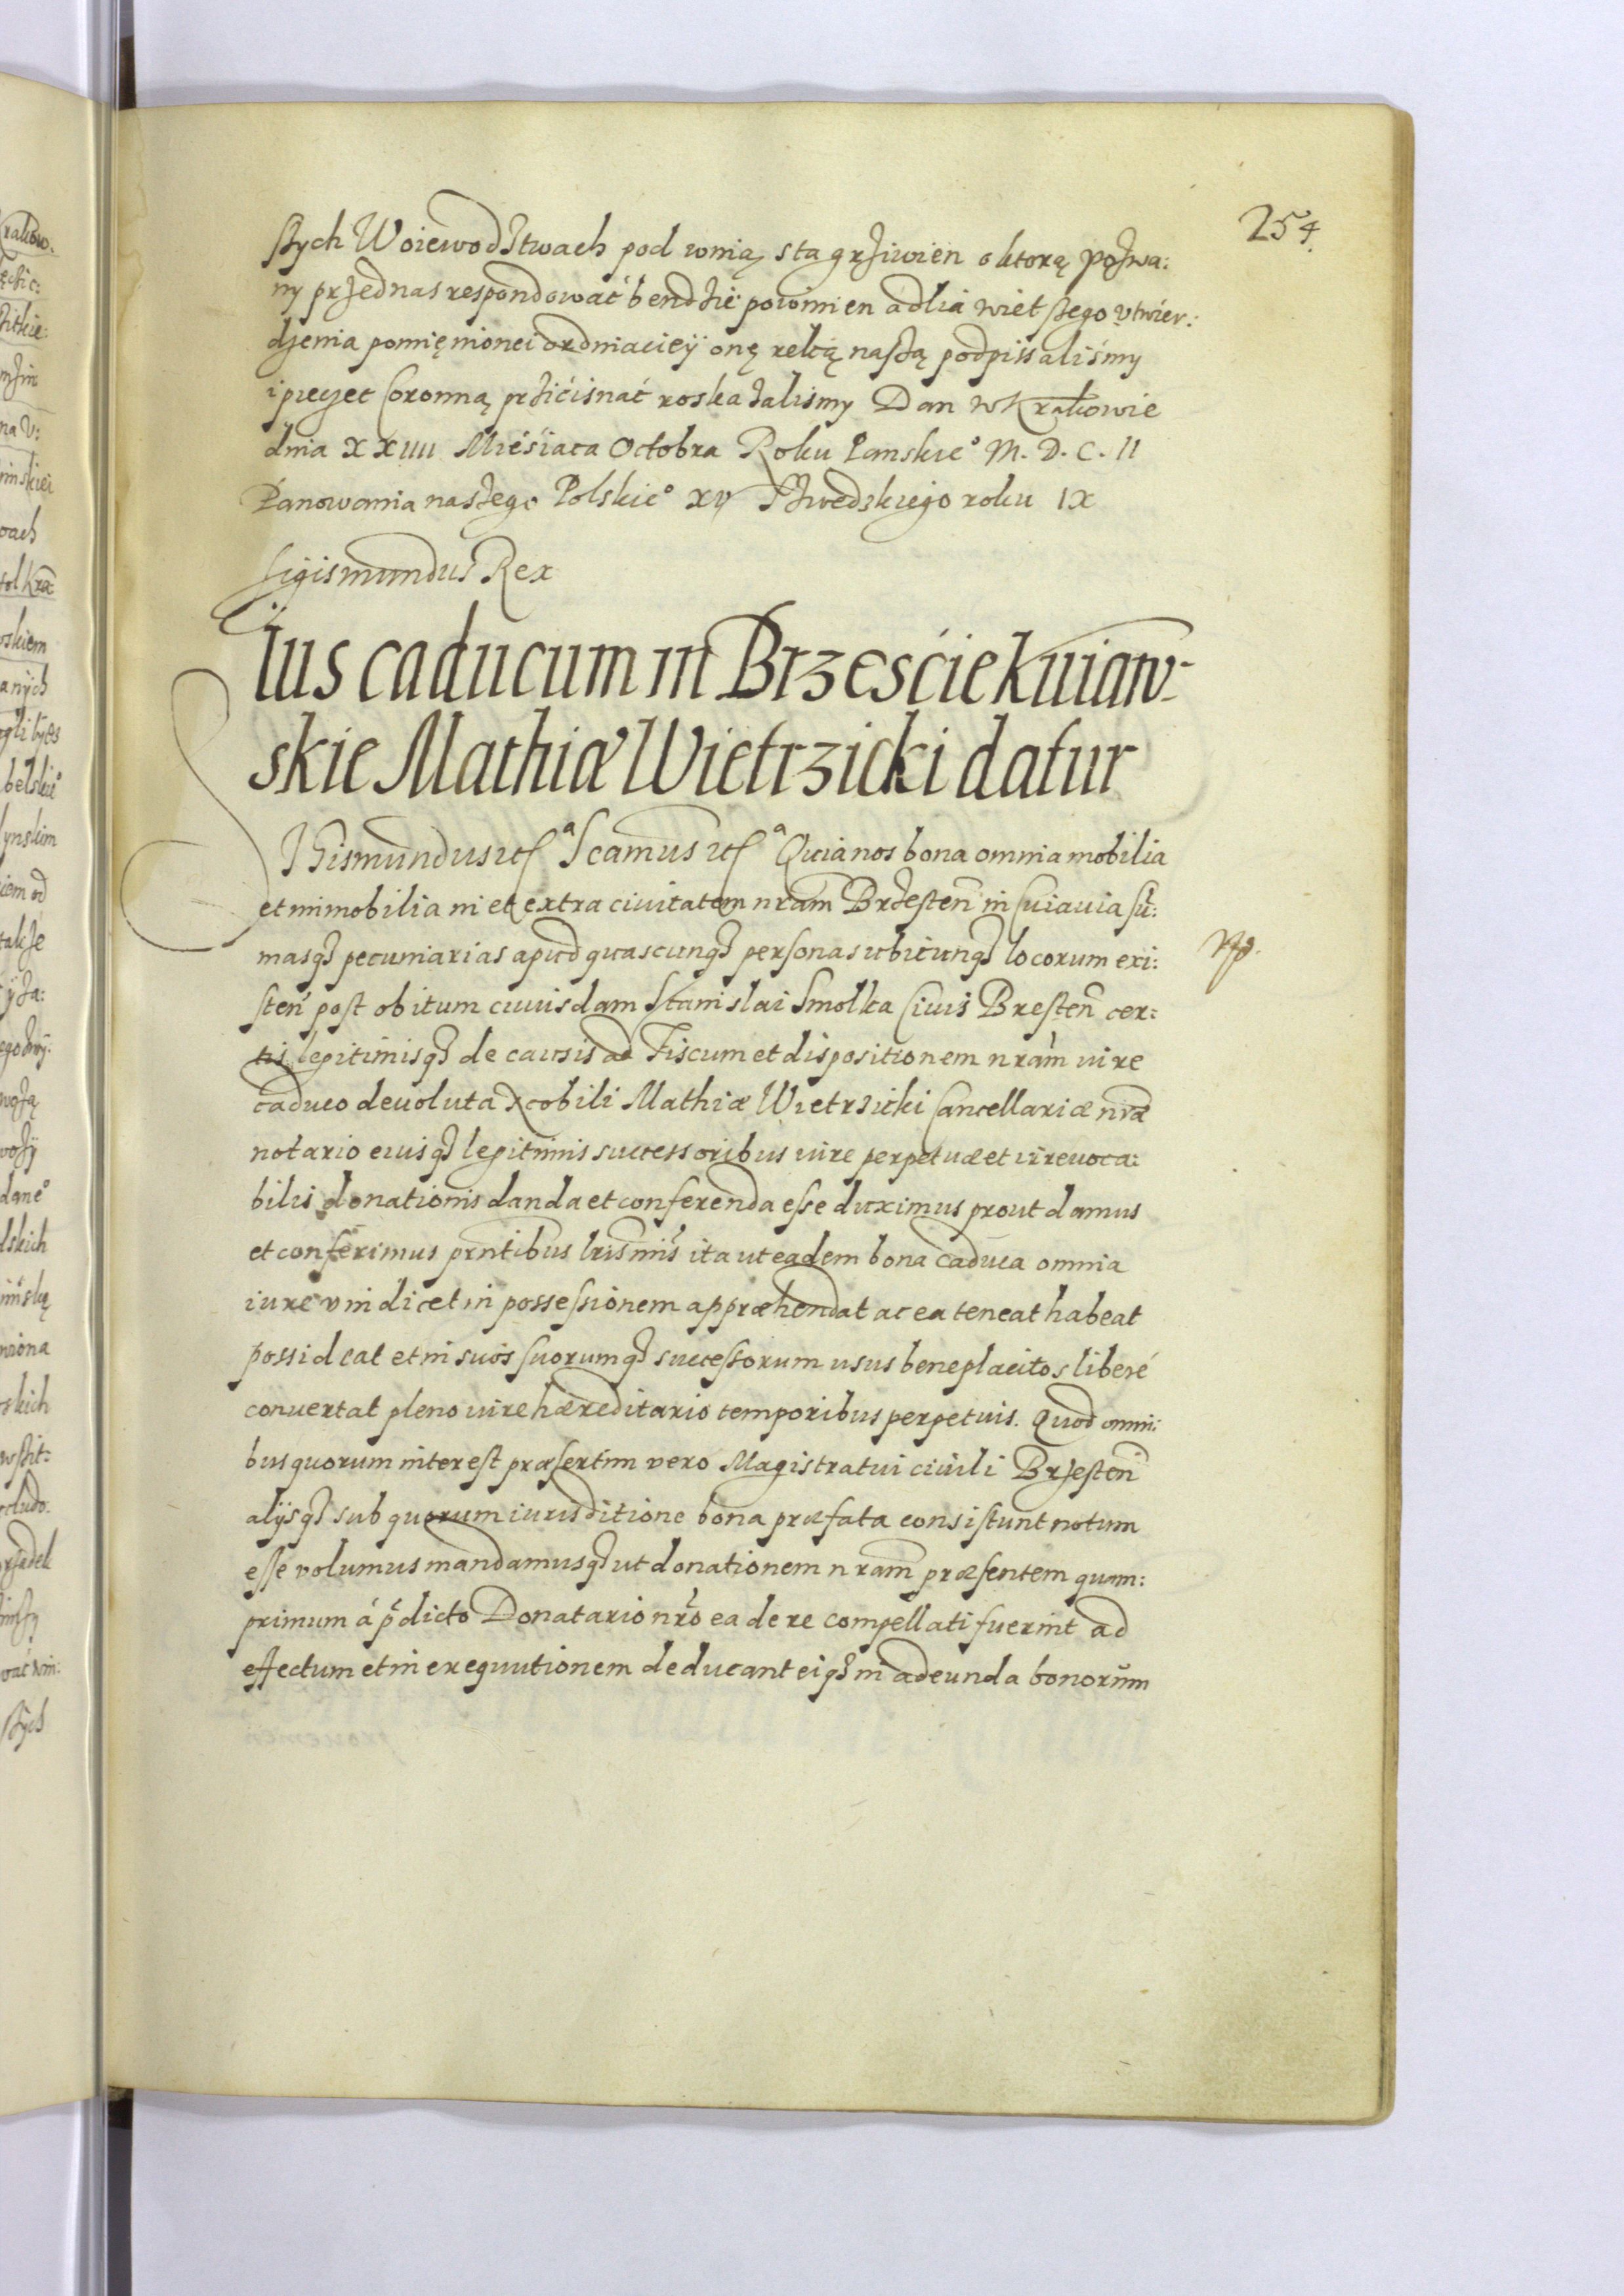 254.
ſtych Woiewodztwach pod winią sta grziwien o ktorą pozwa:
ny przed nas respondować bendzie powinien a dlia wietszego vtwier:
dzenia pomięnionei ordiniaciey onę ręką naszą podpissaliśmy
i pieczęc Coronną prziciśnać roskazalismy Dan w Krakowie
dnia XXIIII Miesiąca Octobra Roku Panskie° M. D. C. II
Panowania naszego Polskie° XV Szwedzkiego roku IX
Sigismundus Rex
Ius caducum in Brzesćie kuiaw-
skie Mathiæ Wietrzicki datur
SIgismundus etc^a Scamus etc^a Quia nos bona omnia mobilia
et immobilia in et extra ciuitatem nram Brzesten in Cuiauia su:
masq3 pecuniarias apud quascunq3 personas ubicunq3 locorum exi:
sten post obitum cuiusdam Stanislai Smolka Ciuis Bresten cer:
tis legitimisq3 de causis ad Fiscum et dispositionem nram iure
caduco deuoluta Nobili Mathiæ Wietrzicki Cancellariæ nræ
notario eiusq3 legitimis successoribus iure perpetuæ et irreuoca:
bilis donationis danda et conferenda esse duximus prout damus
et conferimus prntibus lris nris ita ut eadem bona caduca omnia
iure vindicet in possessionem appræhendat ac ea teneat habeat
possideat et in suos suorumq3 successorum usus beneplacitos liberé
conuertat pleno iure hæreditario temporibus perpetuis. Quod omni:
bus quorum interest præsertim vero Magistratui ciuili Brzesten
alijsq3 sub quorum iurisditione bona præfata consistunt notum
esse volumus mandamusq3 ut donationem nram præsentem quam:
primum á pdicto Donatario nro ea de re compellati fuerint ad
effectum et in exequutionem deducant eiq3 in adeunda bonorum